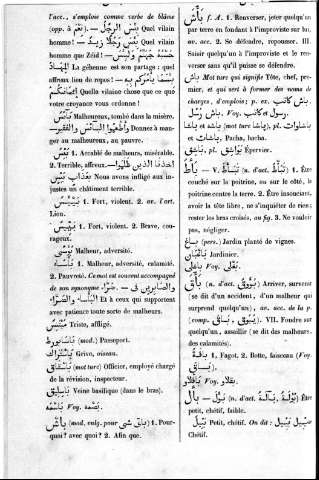 l'acc., s'emploie comme verbe de blâme
(opp. à نِعْمَ). بِئْسَ الرَّجُلُ — Quel vilain
homme! بِئْسَ رَجُلًا زَيْدٌ — Quel vilain
homme que Zéid! حَسْبُهُ جَهَنَّمُ وَلَبِئْسَ
الْمِهَادُ La géhenne est son partage: quel
affreux lieu de repos! بِئْسَمَا يَأْمُرُكُمْ بِهِ
إِيمَانُكُمْ Quelle vilaine chose que ce que
votre croyance vous ordonne!
بَائِسٌ Malheureux, tombé dans la misère.
وَأَطْعِمُوا الْبَائِسَ الْفَقِيرَ Donnez à man-
ger au malheureux, au pauvre.
بَئِيسٌ 1. Accablé de malheurs, misérable.
2. Terrible, affreux. أَخَذْنَا الَّذِينَ ظَلَمُوا
بِعَذَابٍ بَئِيسٍ Nous avons infligé aux in-
justes un châtiment terrible.
1. Fort, violent. 2. av. l'art.
Lion.
1. Fort, violent. 2. Brave, cou-
rageux.
بُؤْسَى Malheur, adversité.
بَأْسَاءُ 1. Malheur, adversité, calamité.
2. Pauvreté. Ce mot est souvent accompagné
de son synonyme ضَرَّاءُ. — وَالصَّابِرِينَ فِي
الْبَأْسَاءِ وَالضَّرَّاءِ Et à ceux qui supportent
avec patience toute sorte de malheurs.
مُبْتَئِسٌ Triste, affligé.
(mod.) Passeport.
Grive, oiseau.
(mot turc) Officier, employé chargé
de la révision, inspecteur.
بَاسِلِيقٌ Veine basilique (dans le bras).
Voy.
بَاشْ (mod. vulg. pour بِأَيِّ شَيْ) 1. Pour-
quoi? avec quoi? 2. Afin que.
بَأَشَ f. A. 1. Renverser, jeter quelqu'un
par terre en fondant à l'improviste sur lui,
av. acc. 2. Se défendre, repousser. III.
Saisir quelqu'un à l'improviste et le ren-
verser sans qu'il puisse se défendre.
بَاشْ Mot turc qui signifie Tête, chef, pre-
mier, et qui sert à former des noms de
charges, d'emplois; p. ex. بَاشْ كَاتِب.
Voy.
بَاشَا et بَاشَة (mot turc پاشا), pl. بَاشَاوَات
et Pacha, bacha.
بَاشِقٌ, pl. بَوَاشِقُ Épervier.
بَأَطَ — V. تَبَأَّطَ (n. d'act. تَبَأُّطٌ) 1. Être
couché sur la poitrine, ou sur le côté, la
poitrine contre la terre. 2. Être insouciant,
avoir la tête libre, ne s'inquiéter de rien;
rester les bras croisés, au fig. 3. Ne vouloir
pas, négliger.
بَاغ (pers.) Jardin planté de vignes.
Jardinier.
Voy.
بَأَقَ (n. d'act. بُؤُوقٌ) Arriver, survenir
(se dit d'un accident, d'un malheur qui
surprend quelqu'un), av. acc. de la p.
(comp. ). VII. Fondre sur
quelqu'un, assaillir (se dit des malheurs,
des calamités).
بَاقَةٌ 1. Fagot. 2. Botte, faisceau (Voy.
).
Voy.
بَؤُلَ — (n. d'act. بَآلَةٌ, بُؤُولَةٌ) Être
petit, chétif, faible.
بَئِيلٌ Petit, chétif. On dit: ضَئِيلٌ بَئِيلٌ
Chétif.